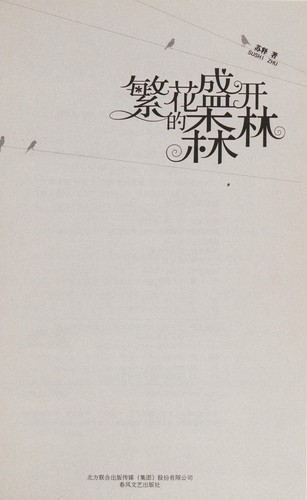 苏释 著
SUSHI ZHU
繁花盛开
的森林
北方联合出版传媒（集团）股份有限公司
春风文艺出版社